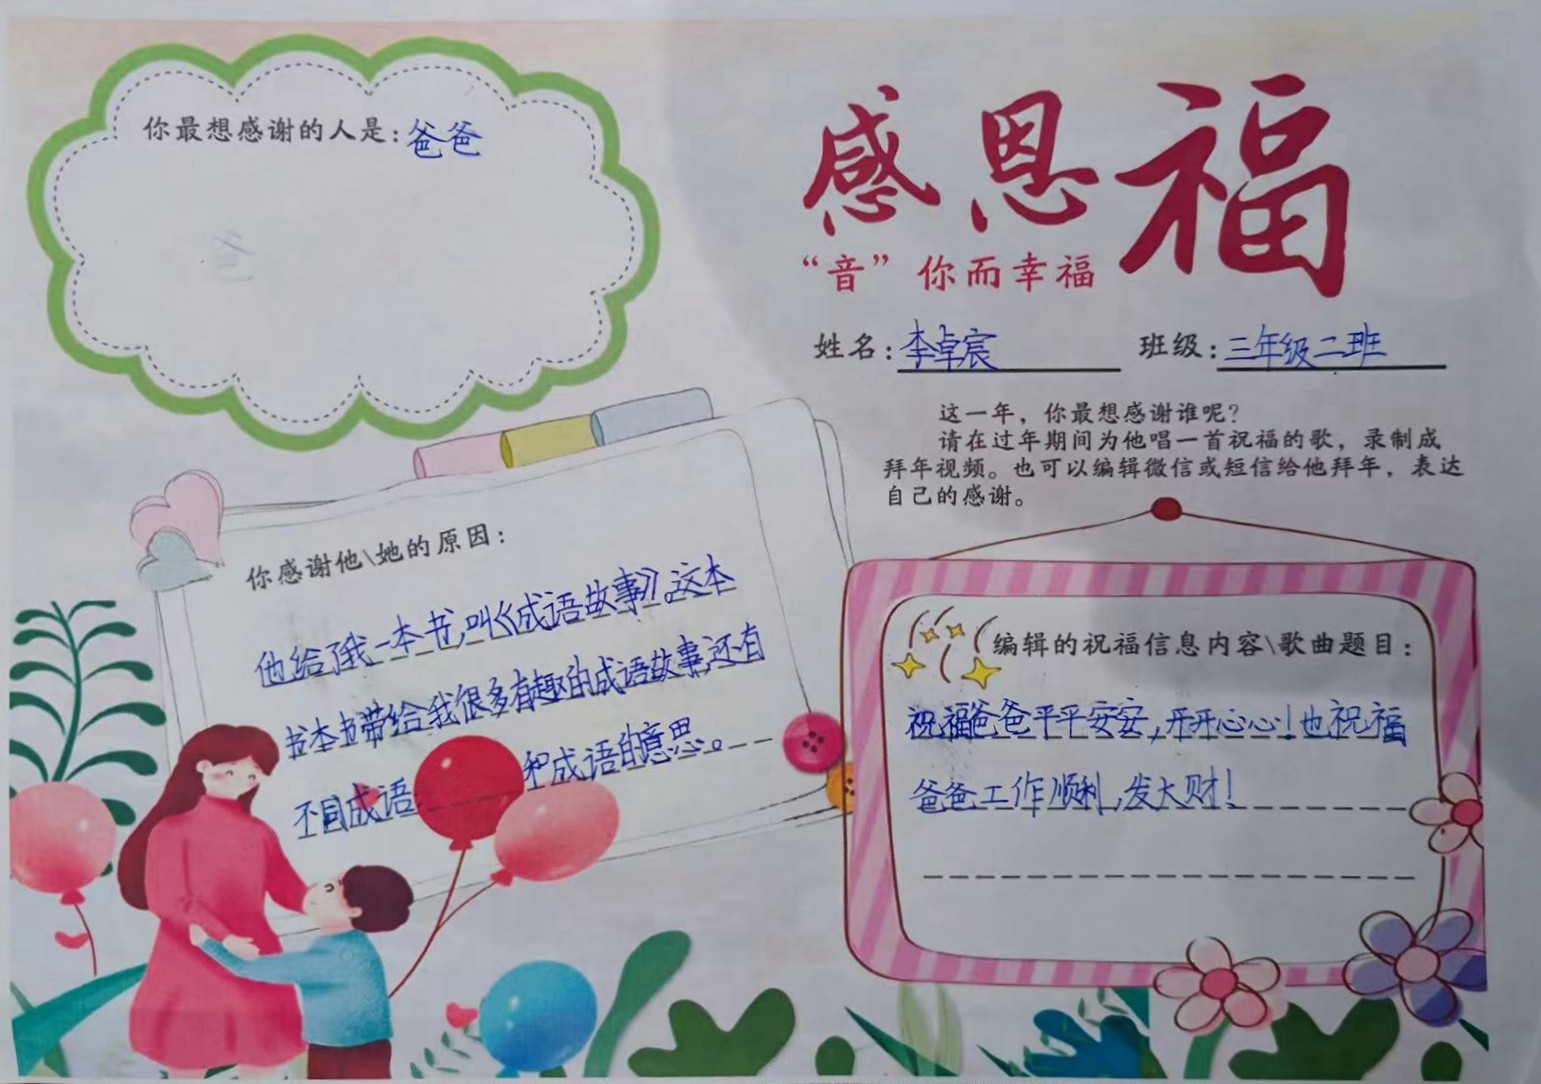 你最想感谢的人是：爸爸
爸
感恩福
“音”你而幸福
姓名：李卓宸 班级：三年级二班
这一年，你最想感谢谁呢？
请在过年期间为他唱一首祝福的歌，录制成
拜年视频。也可以编辑微信或短信给他拜年，表达
自己的感谢。
你感谢他\她的原因：
他给了我一本书，叫《成语故事》。这本
书本书带给我很多有趣的成语故事，还有
不同成语 和成语的意思。
编辑的祝福信息内容\歌曲题目：
祝福爸爸平平安安，开开心心！也祝福
爸爸工作顺利，发大财！